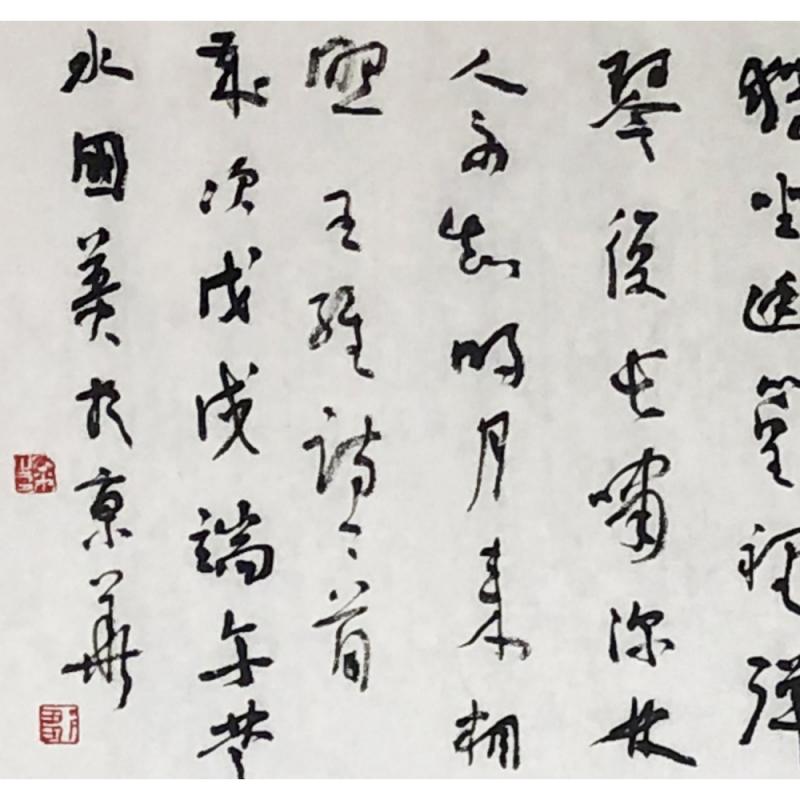 獨坐幽篁裡彈
琴復長嘯深林
人不知明月來相
照王維詩二首
歲次戊戌端午
水國英於京華